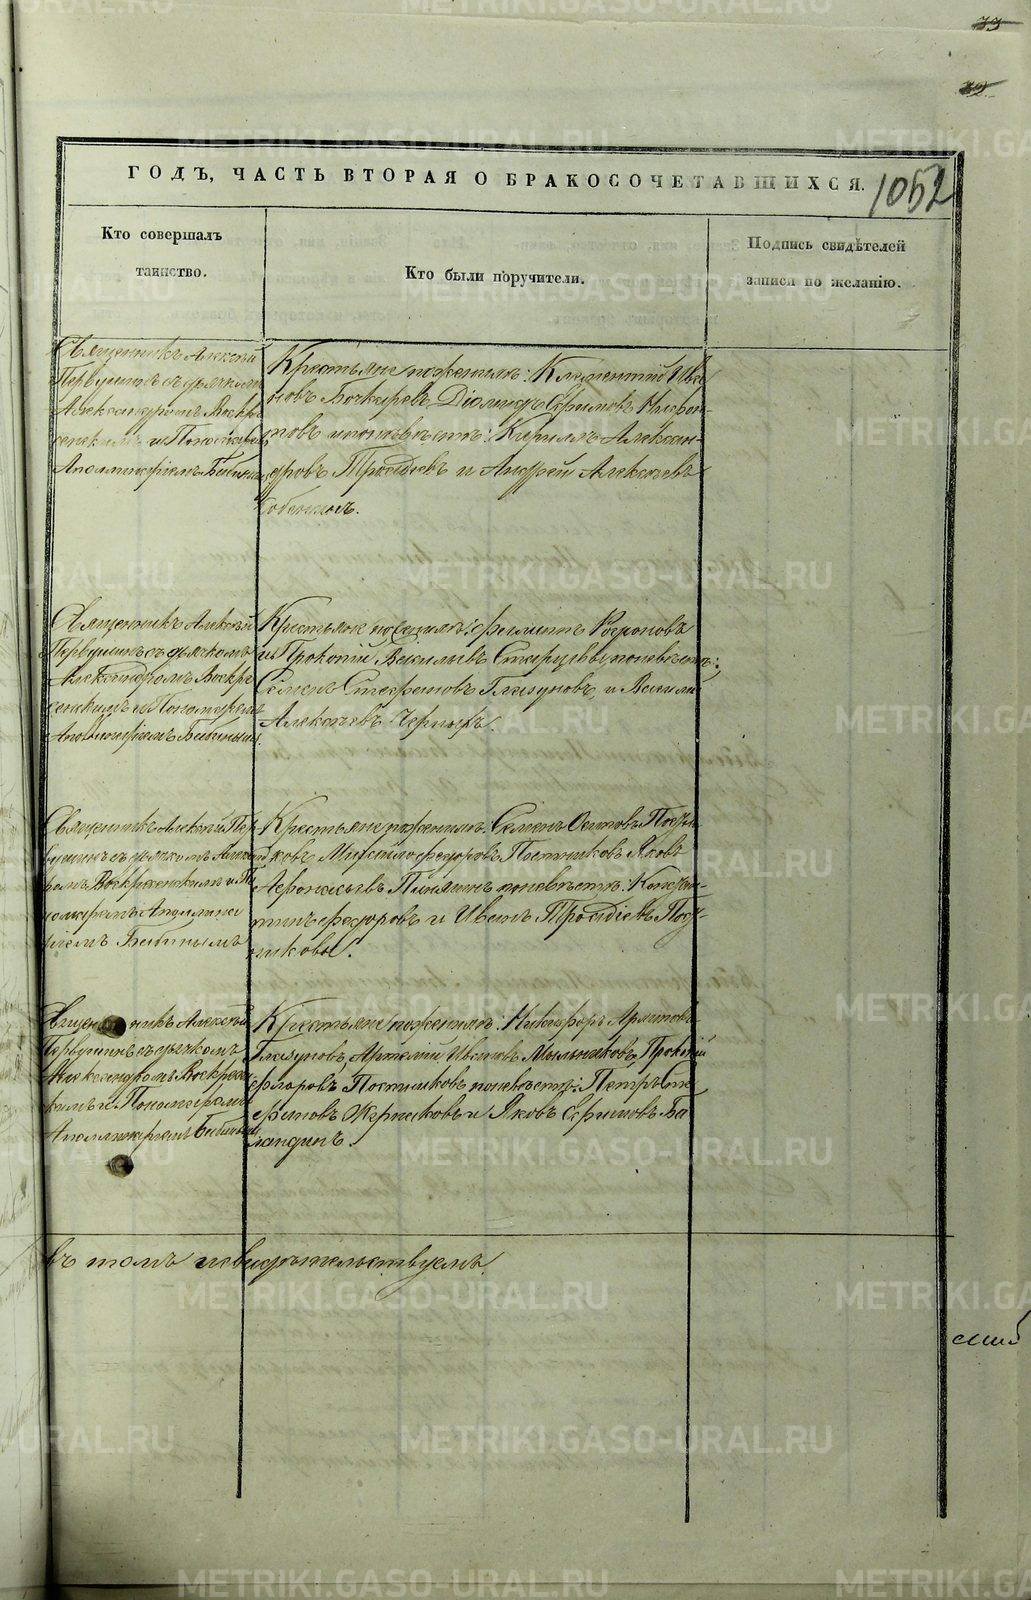 33
32
ГОДЪ, ЧАСТЬ ВТОРАЯ О БРАКОСОЧЕТАВШИХСЯ.
1052
Кто совершалъ
таинство.
Кто были поручители.
Подпись свидѣтелей
записи по желанію.
Священникъ Алексѣй
Первушинъ съ дьячкомъ
Александромъ Воскре
сенскимъ и Пономаремъ
Аполлинаріемъ Бибинымъ
Крестьяне по женихѣ: Климентій Ива
новъ Бочкаревъ, Діомидъ Ефимовъ
товъ и по невѣстѣ: Кириллъ Алексан-
дровъ и Андрей Алексѣевъ
Священникъ Алексѣй
Первушинъ съ дьячкомъ
Александромъ Воскре
сенскимъ и Пономаремъ
Аполлинаріемъ Бибинымъ.
Крестьяне по женихѣ: Филиппъ
и Прокопій Васильевъ Старцевы, по невѣстѣ:
Семенъ Стефановъ Глазуновъ, и Василій
Алексѣевъ Черныхъ.
Священникъ Алексѣй Пер
вушинъ съ дьячкомъ Алексан
ромъ Воскресенскимъ и По
номаремъ Аполлина
ріемъ Бибинымъ
Крестьяне по женихѣ: Семенъ Осиповъ
ковъ Михайло Федоровъ Постниковъ Яковъ
по невѣстѣ: Констан-
тинъ Федоровъ и Иванъ
никовы.
Священникъ Алексѣй
Первушинъ съ дьячкомъ
Александромъ Воскресен
скимъ и Пономаремъ
Аполлинаріемъ Бибинымъ
Крестьяне по женихѣ: Никифоръ
Глазуновъ, Артемій Ивановъ Мыльниковъ, Прокопій
Флоровъ Постниковъ по невѣстѣ: Петръ
и Яковъ Ефимовъ Ба
ландинъ.
въ томъ и свидѣтельствуемъ.
METRIKI.GASO-URAL.RU